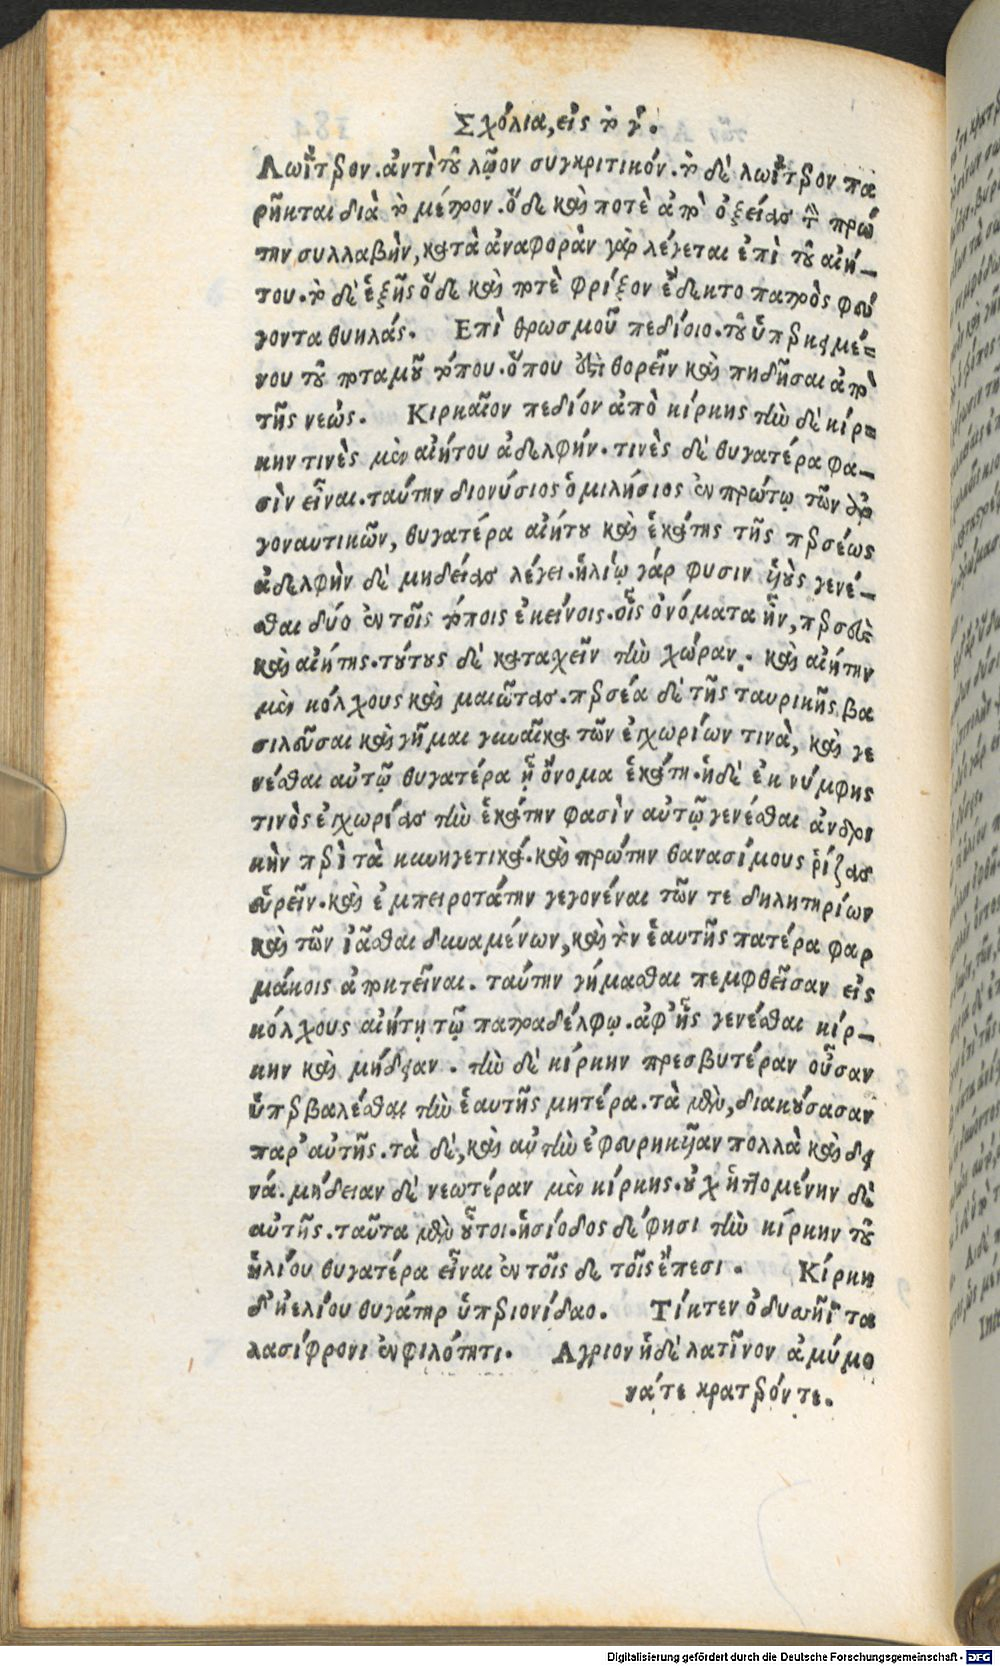 Σχόλια, εἰς τὸ γ΄.
Λωΐτερον. ἀντὶ τοῦ λῷον συγκριτικόν. τὸ δὲ λωΐτερον πα
ρῆκται διὰ τὸ μέτρον. ὅδε καὶ ποτὲ ἀπὸ ὀξείας τὴν πρώ
την συλλαβὴν, κατὰ ἀναφορὰν γὰρ λέγεται ἐπὶ τοῦ αἰή–
του. τὸ δὲ ἑξῆς ὅδε καὶ ποτὲ φρίξον ἔδεκτο πατρὸς φεύ
γοντα θυηλάς. Επὶ θρωσμοῦ πεδίοιο. τοῦ ὑπερκειμέ=
νου τοῦ ποταμοῦ τόπου. ὅπου ἐστὶ θορεῖν καὶ πηδῆσαι ἀπὸ
τῆς νεώς. Κιρκαῖον πεδίον ἀπὸ κίρκης τὴν δὲ κίρ=
κην τινὲς μὲν αἰήτου ἀδελφήν. τινὲς δὲ θυγατέρα φα–
σὶν εἶναι. ταύτην διονύσιος ὁ μιλήσιος ἐν πρώτῳ τῶν ἀρ
γοναυτικῶν, θυγατέρα αἰήτου καὶ ἑκάτης τῆς περσέως
ἀδελφὴν δὲ μηδείας λέγει. ἡλίῳ γάρ φυσιν υἱοὺς γενέ–
σθαι δύο ἐν τοῖς τόποις ἐκείνοις. οἷς ὀνόματα ἦν, περσεὺς
καὶ αἰήτης. τούτους δὲ καταχεῖν τὴν χώραν. καὶ αἰήτην
μὲν κόλχους καὶ μαιώτας. περσέα δὲ τῆς ταυρικῆς βα
σιλεῦσαι καὶ γῆμαι γυναῖκα τῶν ἐγχωρίων τινὰ, καὶ γε
νέσθαι αὐτῷ θυγατέρα ᾗ ὄνομα ἑκάτη. ἡ δὲ ἐκ νύμφης
τινὸς ἐγχωρίας τὴν ἑκάτην φασὶν αὐτῷ γενέσθαι ἀνδρι
κὴν περὶ τὰ κυνηγετικά. καὶ πρώτην θανασίμους ῥίζας
εὑρεῖν. καὶ ἐμπειροτάτην γεγονέναι τῶν τε δηλητηρίων
καὶ τῶν ἰᾶσθαι δυναμένων, καὶ τὸν ἑαυτῆς πατέρα φαρ
μάκοις ἀποκτεῖναι. ταύτην γήμασθαι πεμφθεῖσαν εἰς
κόλχους αἰήτῃ τῷ πατραδέλφῳ. ἀφ᾽ ἧς γενέσθαι κίρ–
κην καὶ μήδειαν. τὴν δὲ κίρκην πρεσβυτέραν οὖσαν
ὑπερβαλέσθαι τὴν ἑαυτῆς μητέρα. τὰ μὲν, διακούσασαν
παρ᾽ αὐτῆς. τὰ δὲ, καὶ αὐτὴν ἐφευρηκῆαν πολλὰ καὶ δει
νά. μήδειαν δὲ νεωτέραν μὲν κίρκης. οὐχ ἡττομένην δὲ
αὐτῆς. ταῦτα μὲν οὗτοι. ἡσίοδος δὲ φησι τὴν κίρκην τοῦ
ἡλίου θυγατέρα εἶναι ἐν τοῖς δε τοῖς ἔπεσι. Κίρκη
δ᾽ ἠελίου θυγάτηρ ὑπεριονίδαο. Τίκτεν ὀδυσσῆϊ τα
λασίφρονι ἐν φιλότητι. Αγριον ἠδὲ λατῖνον ἀμύμο
νά τε κρατερόν τε.
Digitalisierung gefördert durch die Deutsche Forschungsgemeinschaft - DFG